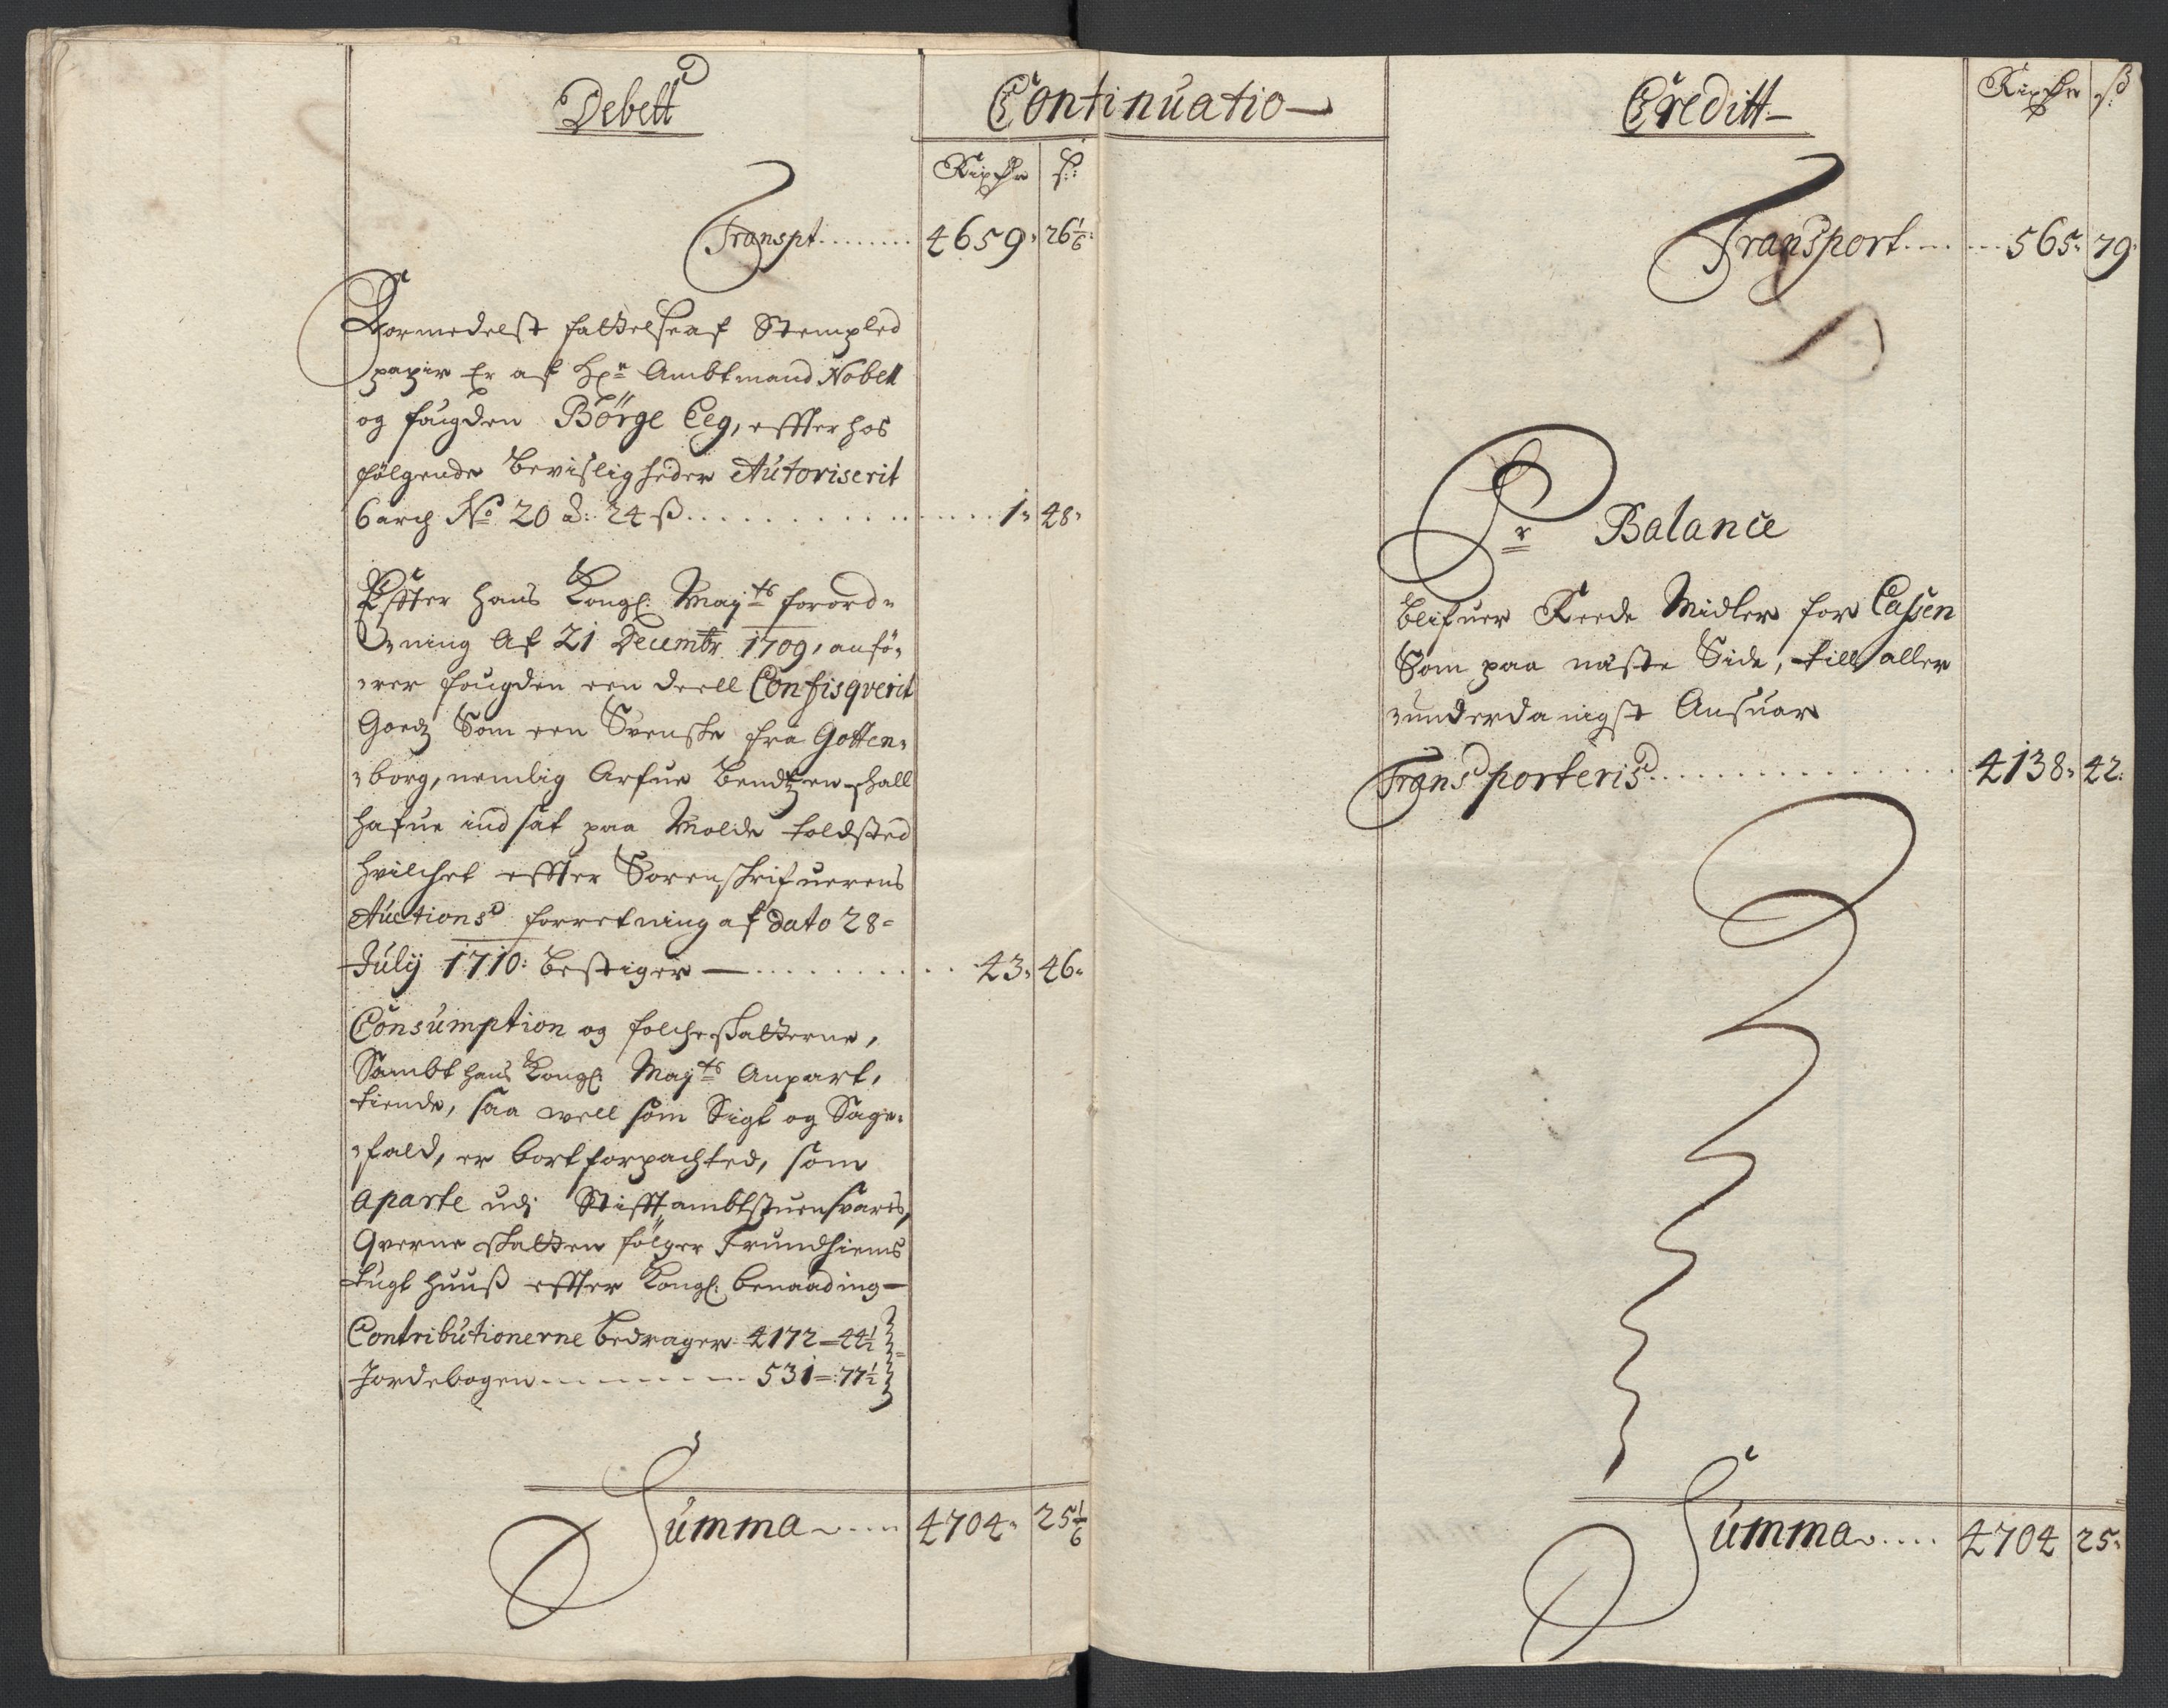 Debett
Continuatio
Rixdr ß
Transpt........ 4659. 26 1/6.
Formedelst fattelse af Stempled
papir Er af Hr Ambtmand Nobell
og faugden Börge Eeg, effter hos
fölgende beviisligheder Autoriserit
6 arch No 20 â: 24 ß.............. 1. 48.
Effter Hans Kongl: Maytts forord-
ning Af 21 Decembr 1709, anfö-
rer fougden een deell Confisqverit
Goedz Som een Svenske fra Gotten-
borg, nemlig Arfue Bendtzen shall
hafue ind sat paa Molde toldsted
hvilchet effter Sorenskrifuerens
Auctions forretning af dato 28=
July 1710: bestiger — .......... 43. 46.
Consumption og folcheskatterne,
Sambt hans Kongl: Maytts Anpart,
tiende, saa well som Sigt og Sage-
fald, er bortforpachted, som
aparte udi Stifftambtstuen svaris,
Qverne skatten fölger Trundhiems
tugt huuß effter Kongl: benaading —
Contributionerne bedrager 4172 = 44 1/2
Jordebogen - - - - - - - 531 = 77 1/2
Summa .... 4704. 25 1/6
Creditt
Rixdr ß
Transport...... 565. 79.
Pr Balance
blifuer Reede Midler for Cassen
Som paa næste Side, till aller
underdanigst Ansuar
Transporteris ............... 4138. 42.
Summa .... 4704 25.